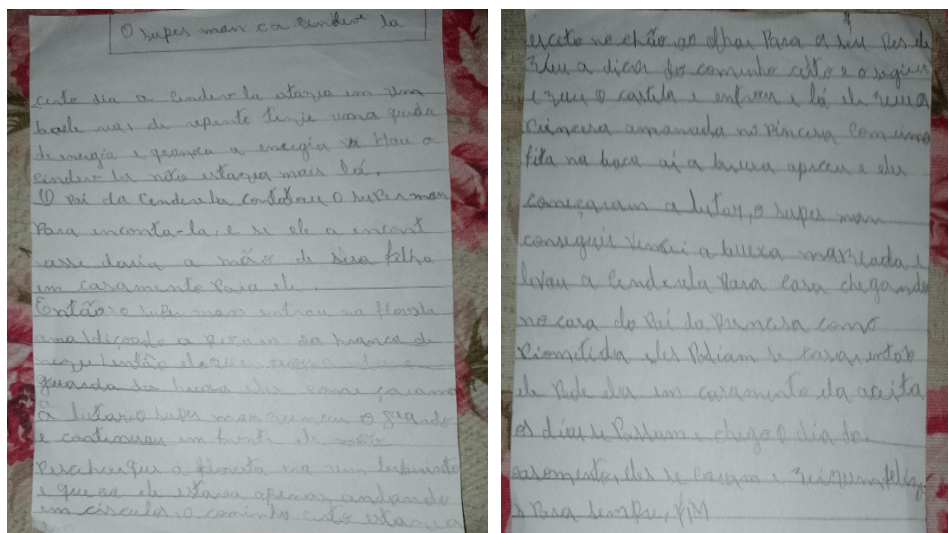 O super man ea Cindere la
certo dia a Cindere la estava em um
baele mas de repente teve uma queda
de energia e quando a energia vo ltou a
cindere la não estava mais lá.
O Pai da Cenderela contatou o super man
Para incontra-la, e se ele a encont
rasse daria a mão de sua filha
em casamento Para ele.
Então o super man entrou na floresta
amaldiçoada a
guarda da bruxa eles começaram
a lutar, o super man venceu o guarda
e continuou em
a floresta era um labirinto
e que ele estava apenas andando
em circulos, o caminho certo estava
escrito no chão ao olhar Para o
a dica do caminho certo e o
o castelo e entrou e lá ele
com uma
fita na boca ai a bruxa e eles
começaram a lutar, o super man
conseguiu a bruxa e
levou a Cenderela Para casa chegando
na casa do Pai da Princesa como
eles Podiam se casar então
ele Pede ela em casamento ela aceita
os dias se Passam e chego o dia do
casamento, eles se casam e
s Para sempre, FIM